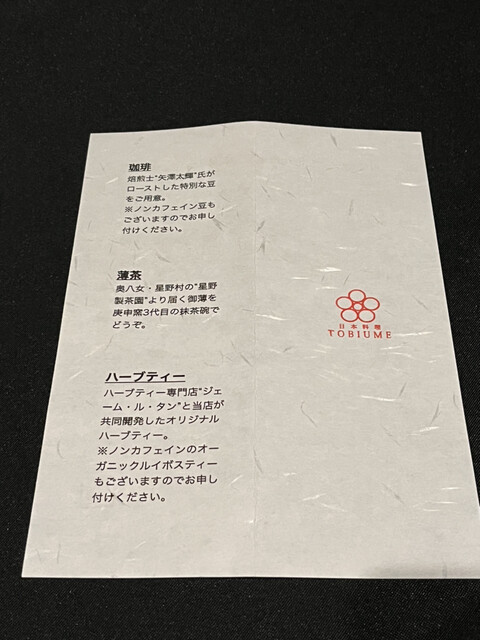 珈琲
焙煎士"矢澤太輝"氏が
ローストした特別な豆
をご用意。
※ノンカフェイン豆も
ございますのでお申し
付けください。
薄茶
奥八女・星野村の"星野
製茶園"より届く御薄を
庚申窯3代目の抹茶碗で
どうぞ。
ハーブティー
ハーブティー専門店"ジェ
ーム・ル・タン"と当店が
共同開発したオリジナル
ハーブティー。
※ノンカフェインのオー
ガニックルイボスティー
もございますのでお申し
付けください。
日本料理
TOBIUME